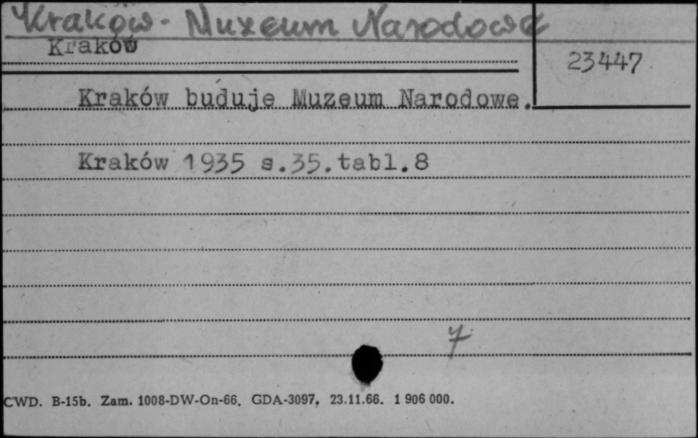 Kraków - Muzeum Narodowe
Kraków
23447
Kraków buduje Muzeum Narodowe.
Kraków 1935 s.35.tabl.8
7
CWD. B-15b. Zam. 1008-DW-On-66. GDA-3097. 23.11.66. 1 906 000.